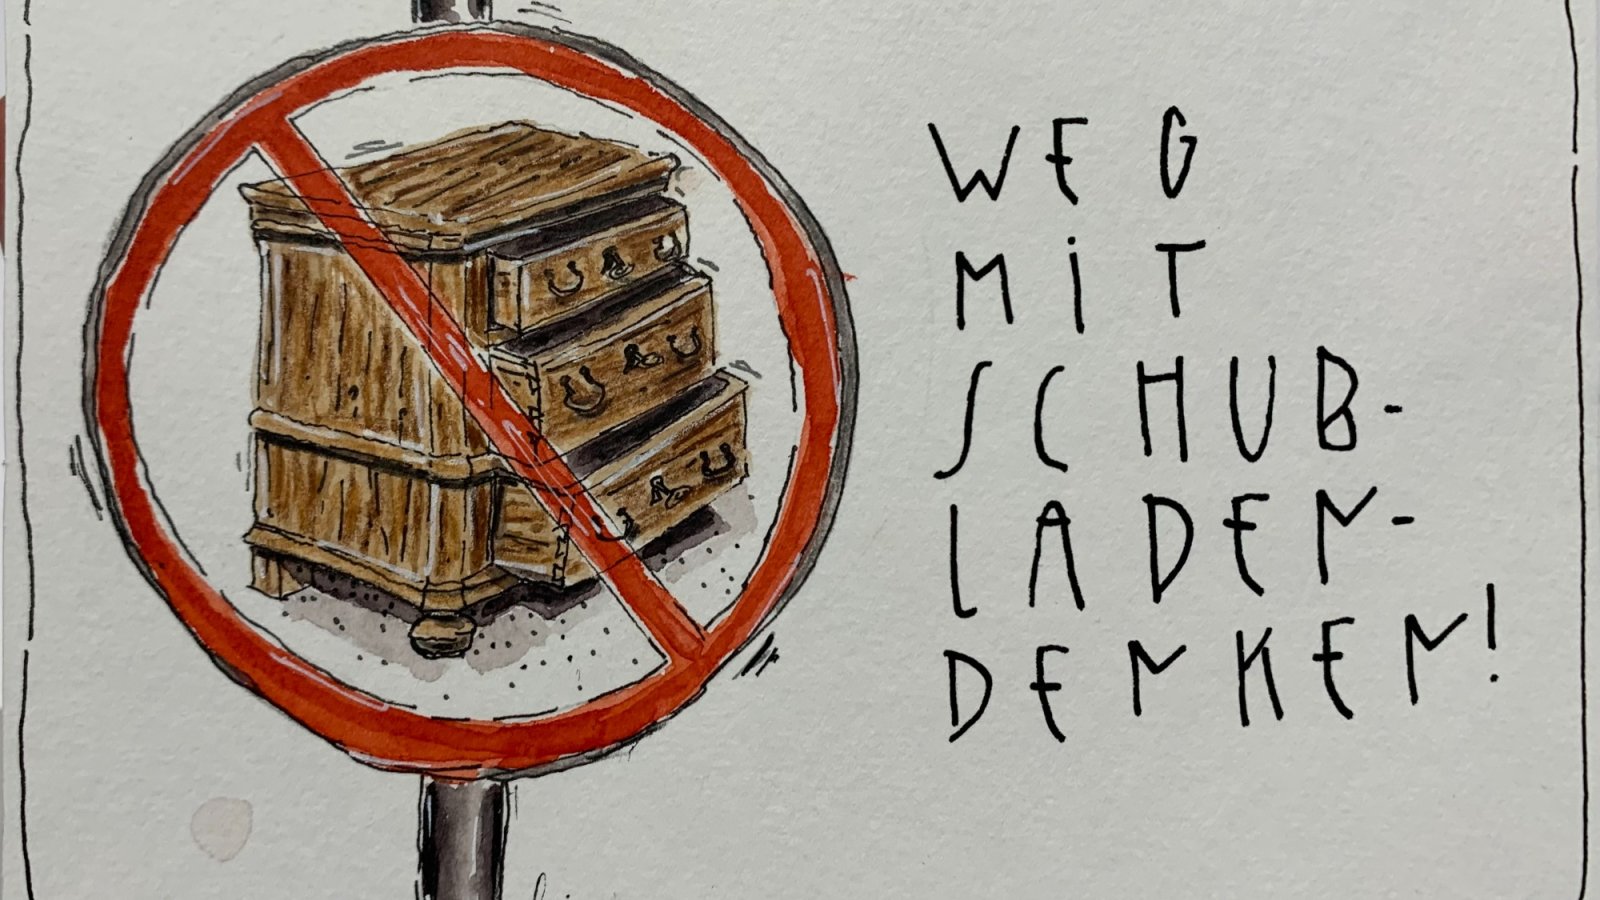 WEG
MiT
SCHUB-
LADEN-
DENKEN!